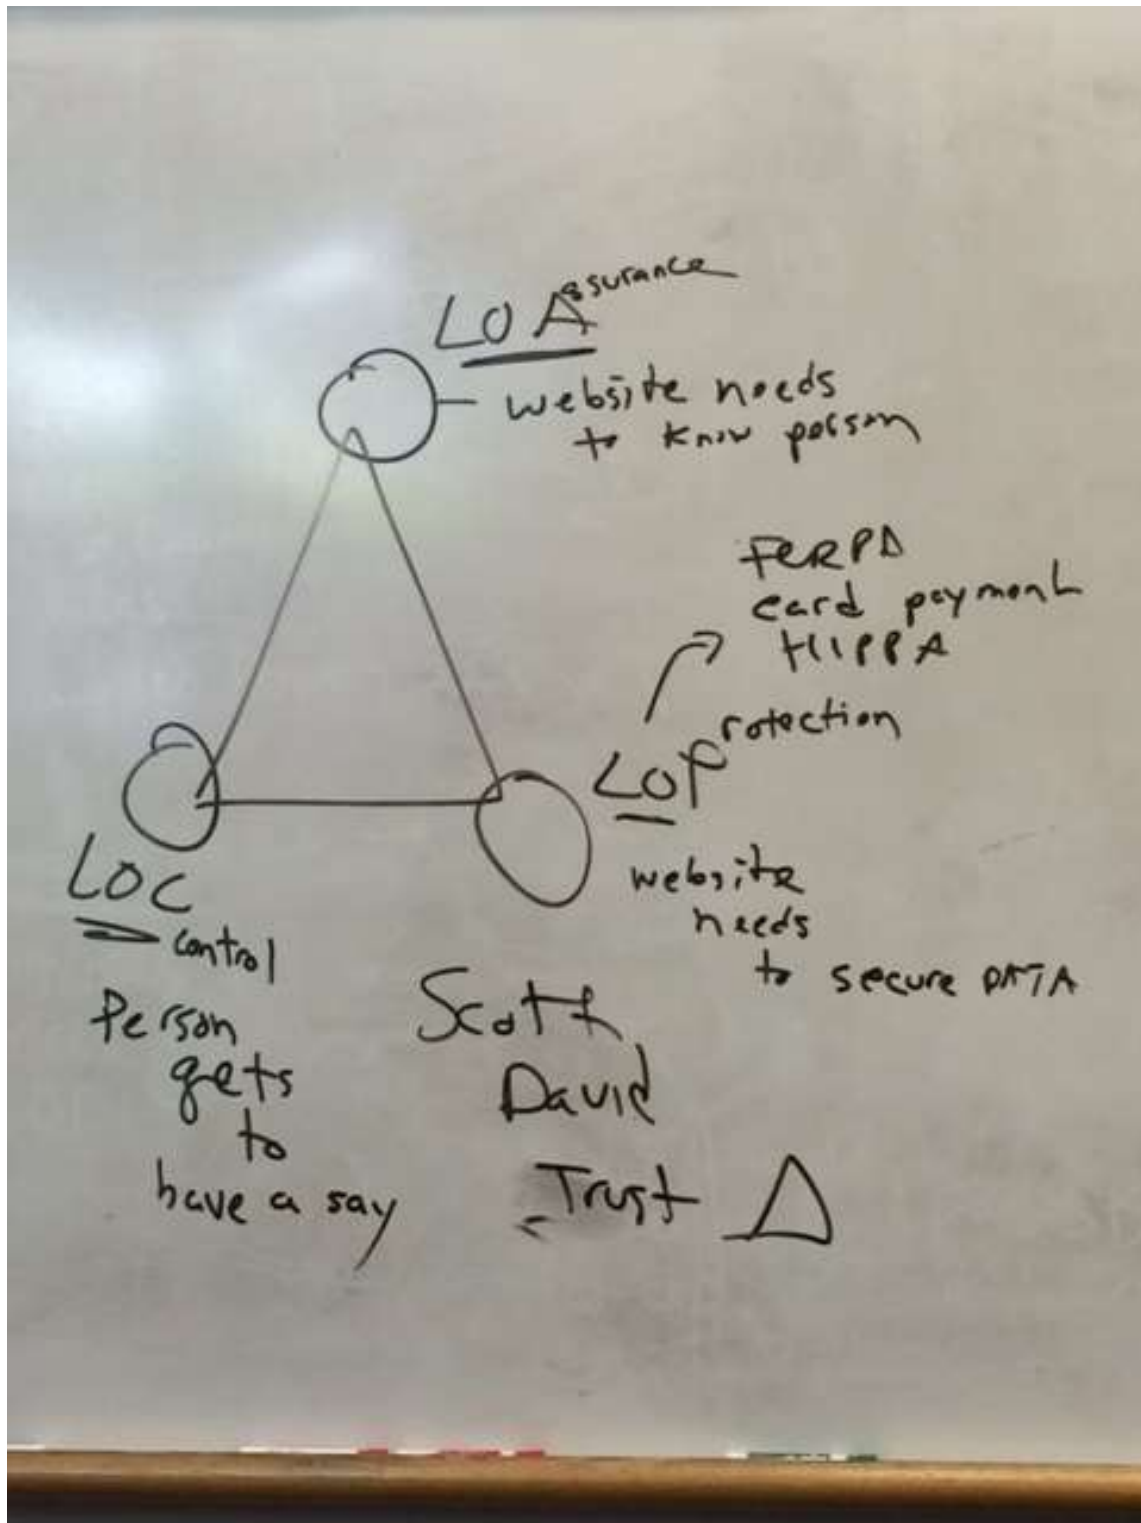 LOAssurance
website needs
to know person
FERPA
card payment
HIPPA
LOProtection
website
needs
to secure DATA
LOC
control
Person
gets
to
have a say
Scott
David
Trust